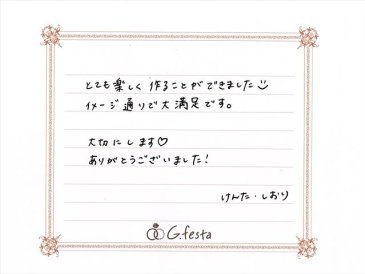 とても楽しく作ることができました
イメージ通りで大満足です。
大切にします♡
ありがとうございました!
けんた・しおり
G.festa